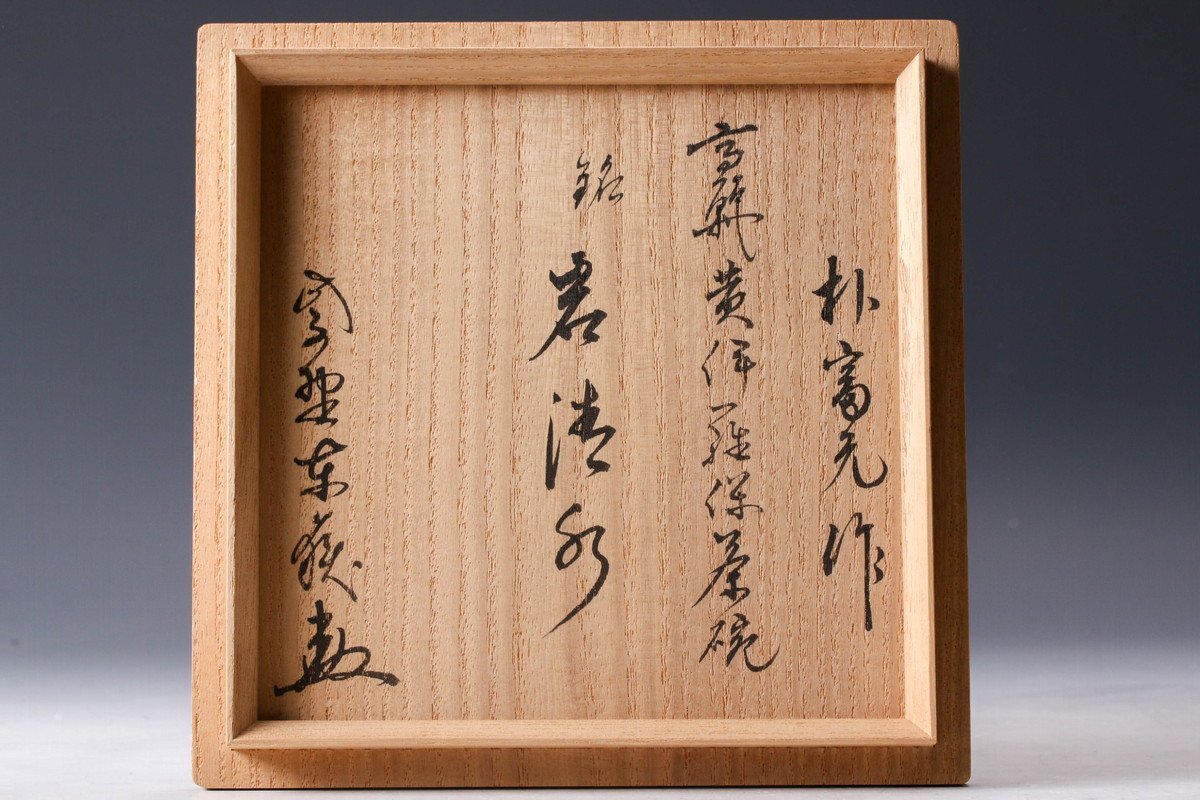 朴富元作
高麗黄伊羅保茶碗
銘
岩清水
紫野東嶽